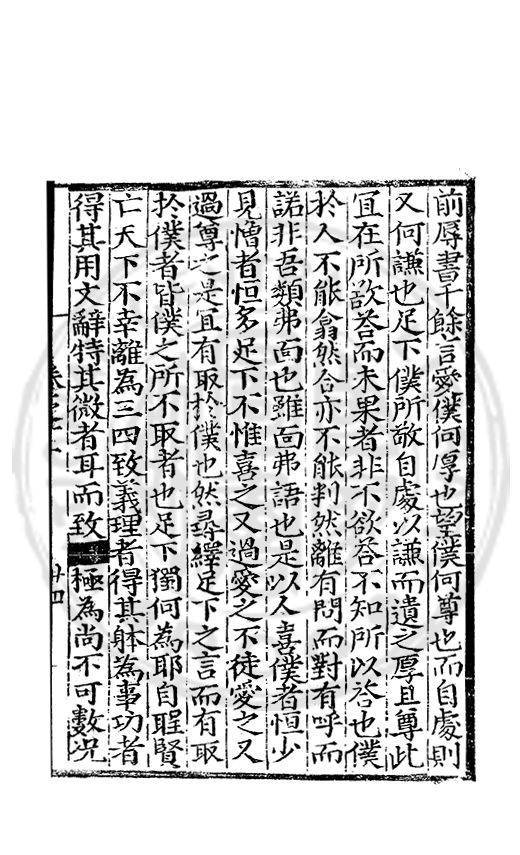 前辱書千餘言愛僕何厚也望僕何尊也而自處則
又何謙也足下僕所敬自處以謙而遺之厚且尊此
冝在所欲荅而未果者非不欲荅不知所以荅也僕
扵人不能翕然合亦不能判然離有問而對有呼而
諾非吾類弗靣也雖靣弗語也是以人喜僕者恒少
見憎者恒多足下不惟喜之又過愛之不徒愛之又
過尊之是冝有取扵僕也然尋繹足下之言而有取
扵僕者皆僕之所不取者也足下獨何為耶自聖賢
亡天下不幸離為三四致義理者得其躰為事功者
得其用文辭特其微者耳而致極為尚不可數况
卷之二
廿四